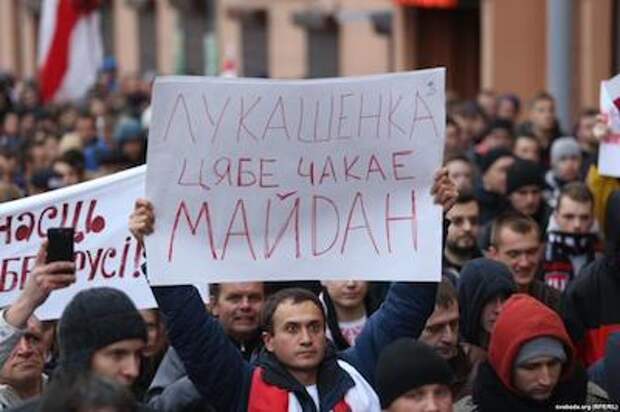 ЛУКАШЕНКА
ЦЯБЕ ЧАКАЕ
МАЙДАН
насць
БЕ
РУСІ!
svaboda.org (RFE/RL)